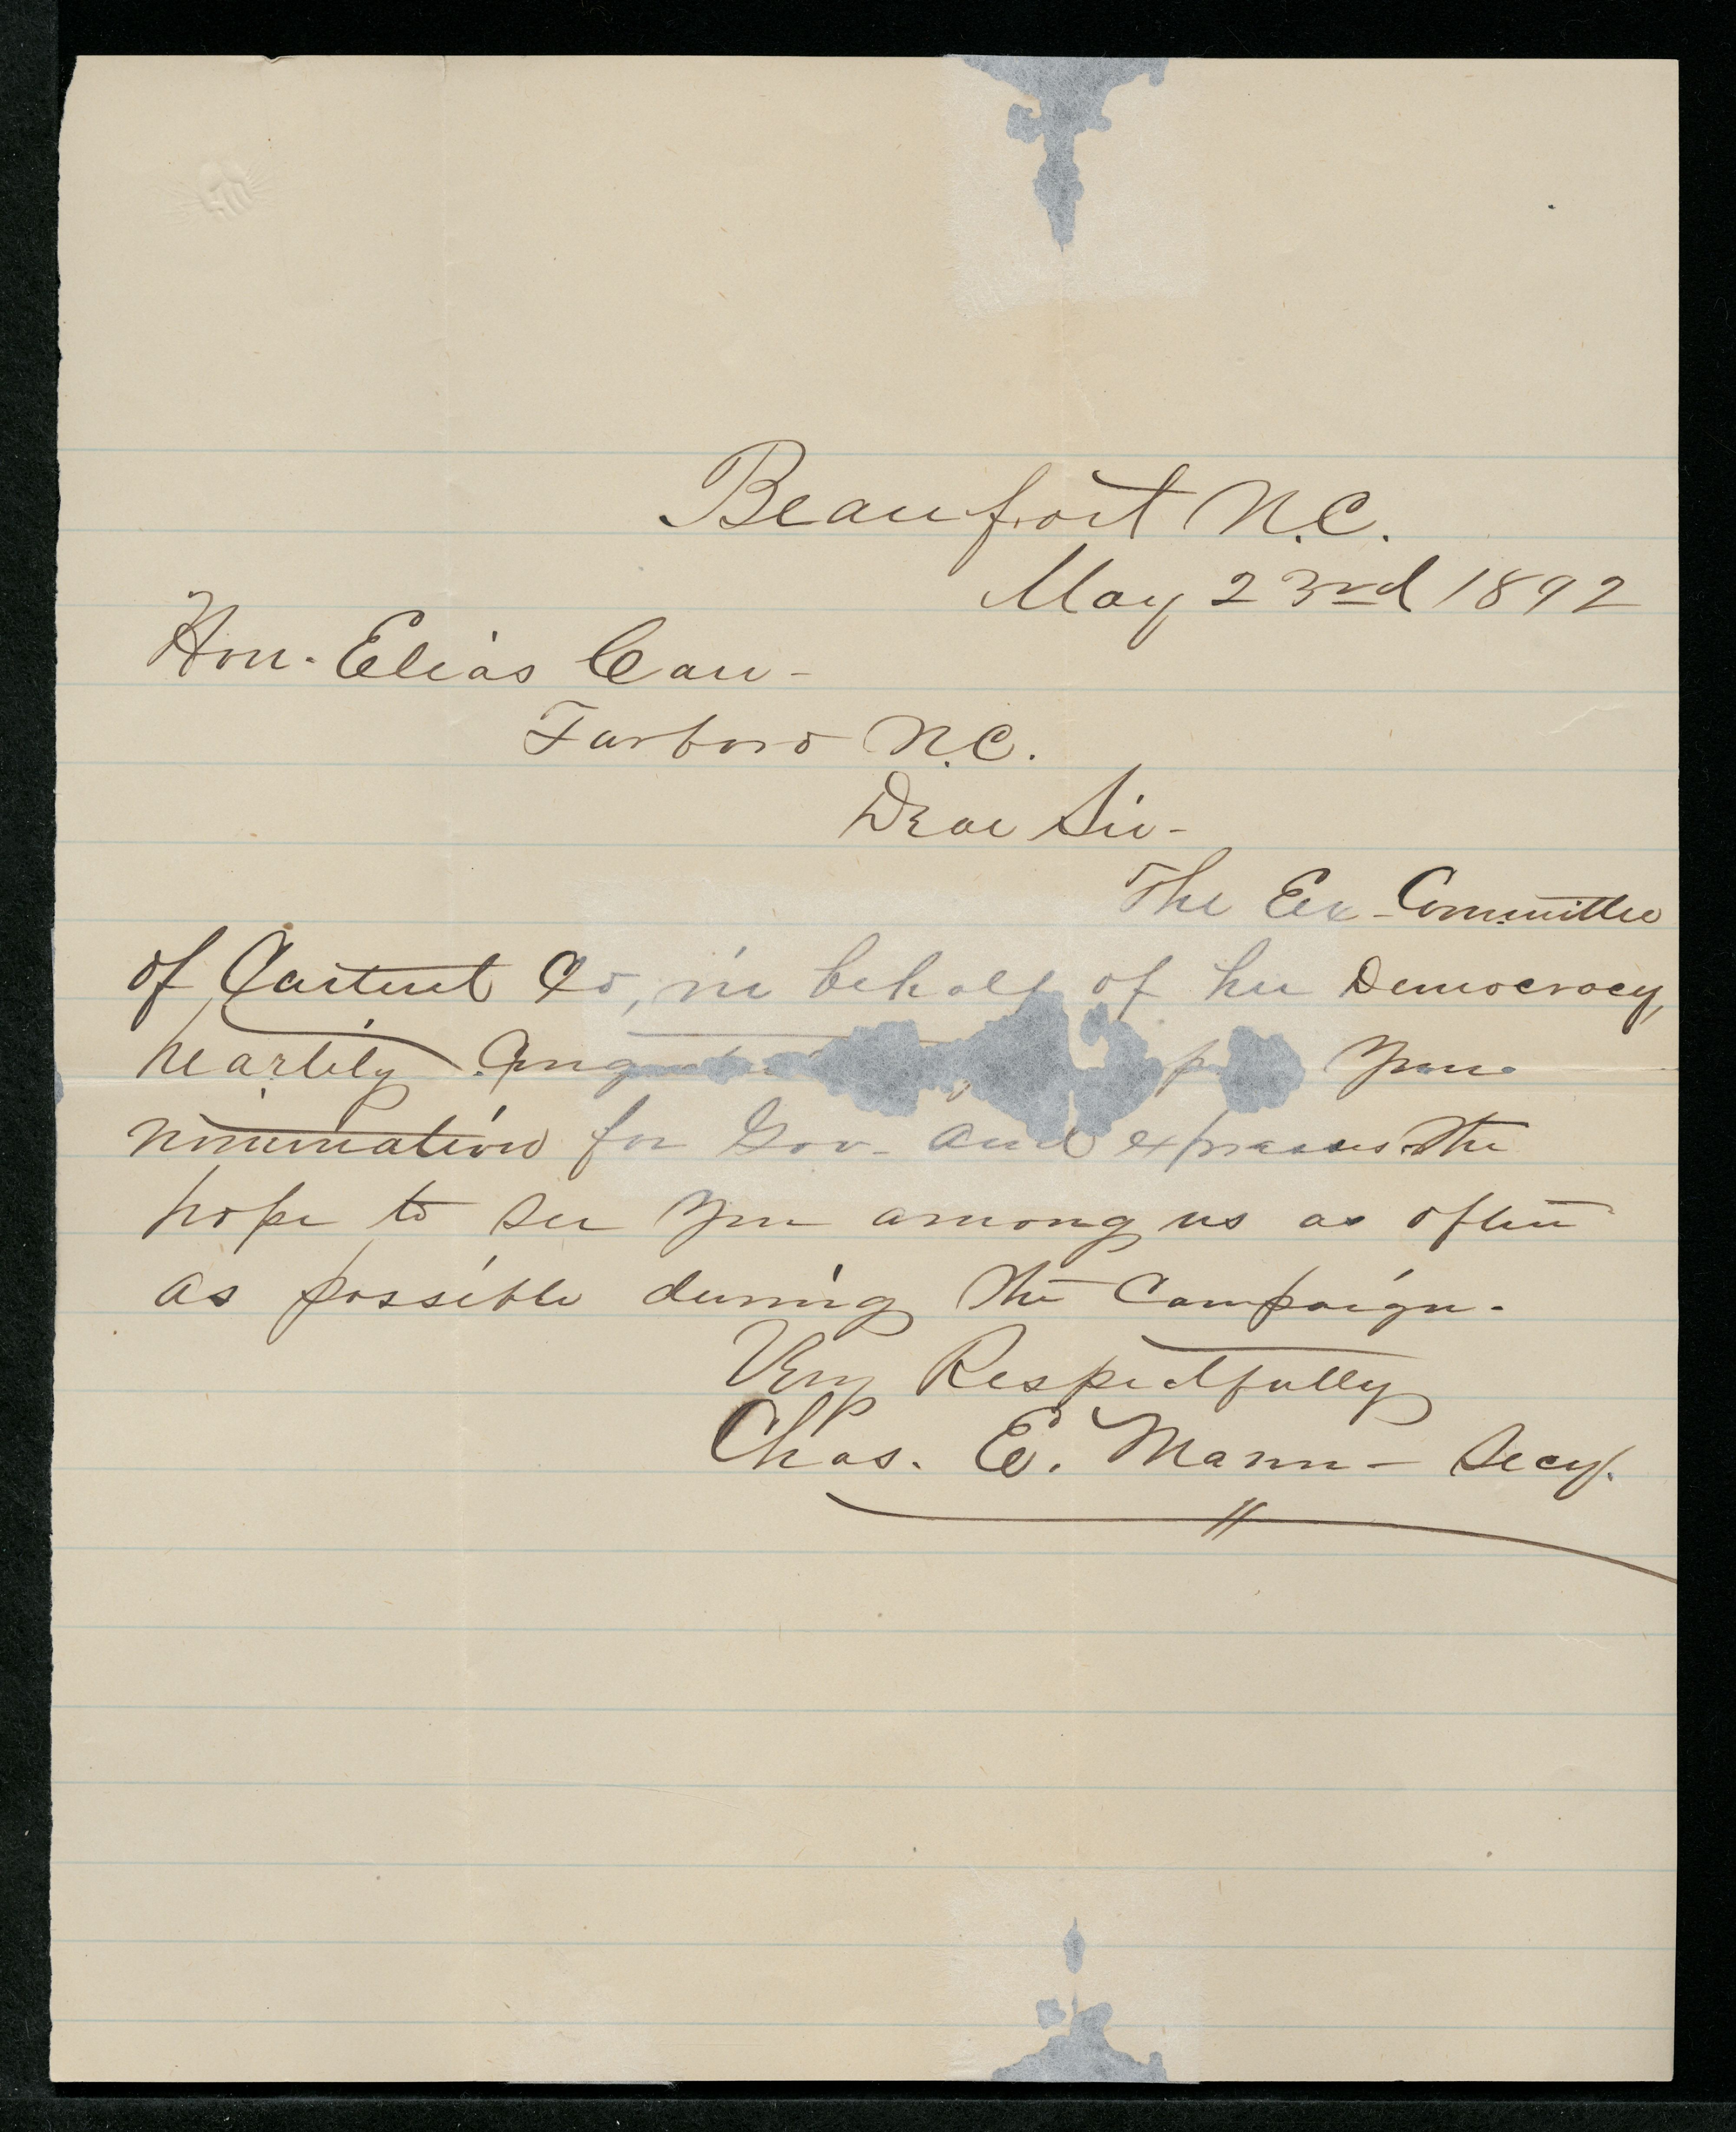 Beaufort N.C.
May 23rd 1892
Hon. Elias Carr -
Tarboro N.C.
Dear Sir -
The Ex- Committee
of Carteret Co, in behalf of her Democracy,
heartily your
nomination for Gov. and expresses the
hope to see you among us as often
as possible during the Campaign.
Very Respectfully
Chas. E. Mann - Secy.